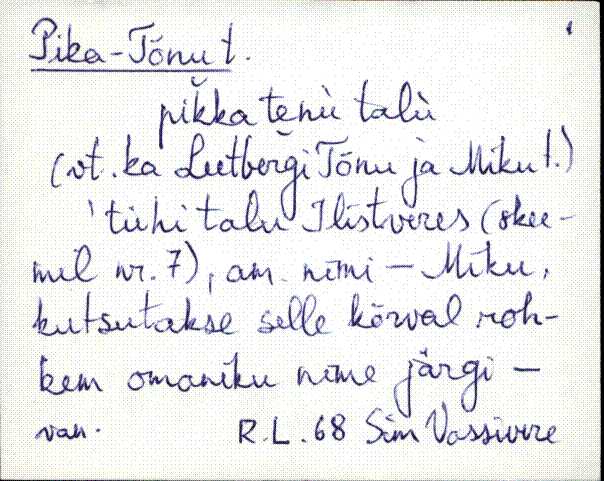 Pika-Tõnu t.
pĭkka tenù talù
(vt. ka Leetbergi Tõnu ja Miku t.)
'tühi talu Ilistveres (skee-
mil nr. 7), am. nimi – Miku,
kutsutakse selle kõrval roh-
kem omaniku nime järgi –
van. R.L. 68 Sim Vassivere